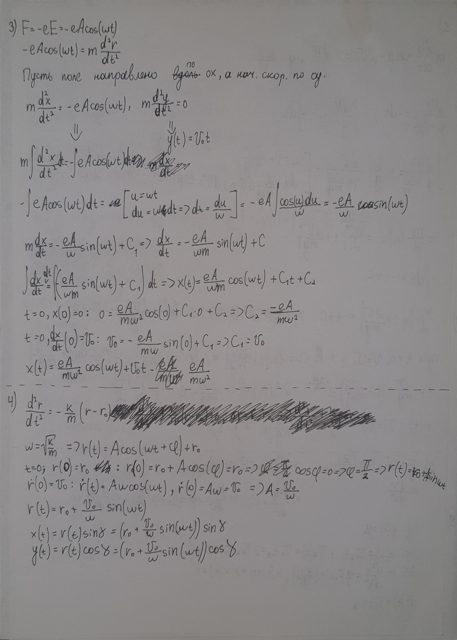 3) F=-eE=-eAcos(wt)
-eAcos(wt)=m d²r/dt²
Пусть поле направлено по ox, а нач. скор. по oy.
m d²x/dt² = -eAcos(wt), m d²y/dt² = 0
⇓ ⇓
y(t)=V₀t
m∫ d²x/dt² dt=-∫eAcos(wt)dt
-∫eAcos(wt)dt= [u=wt du=wdt=>dt=du/w] = -eA∫cos(u)/w du = -eA/w sin(wt)
m dx/dt = -eA/w sin(wt)+C₁=> dx/dt = -eA/wm sin(wt)+C
∫dx/dt dt=∫(-eA/wm sin(wt)+C₁)dt =>x(t)= eA/wm cos(wt)+C₁t+C₂
t=0, x(0)=0: 0= eA/mw² cos(0)+C₁·0+C₂=>C₂= -eA/mw²
t=0, dx/dt(0)=V₀: V₀= -eA/mw sin(0)+C₁=>C₁=V₀
x(t)= eA/mw² cos(wt)+V₀t- eA/mw²
4) d²r/dt² = -k/m (r-r₀)
w=√k/m =>r(t)=Acos(wt+φ)+r₀
t=0; r(0)=r₀: r(0)=r₀+Acos(φ)=r₀=> cosφ=0=>φ=π/2=>r(t)=
ṙ(0)=V₀: ṙ(t)=Awcos(wt), ṙ(0)=Aw=V₀ =>A=V₀/w
r(t)=r₀+ V₀/w sin(wt)
x(t)=r(t)sinγ=(r₀+ V₀/w sin(wt))sinγ
y(t)=r(t)cosγ=(r₀+ V₀/w sin(wt))cosγ